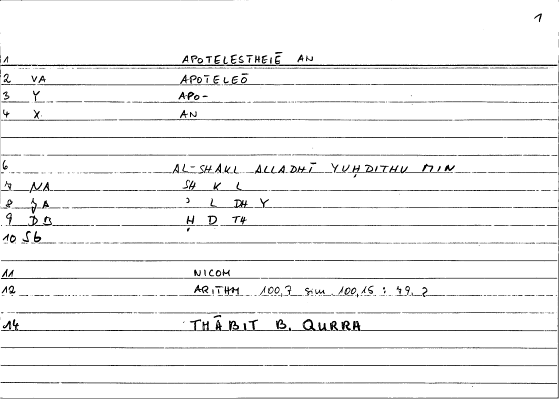 1
1 APOTELESTHEIĒ AN
2 VA APOTELEŌ
3 Y APO-
4 X AN
6 AL-SHAKL ALLADHĪ YUḤDITHU MIN
7 NA SH K L
8 JA ʾ L DH Y
9 DB Ḥ D TH
10 Sb
11 NICOM
12 ARITHM 100,7 sim 100,15 :
14 THĀBIT B. QURRA